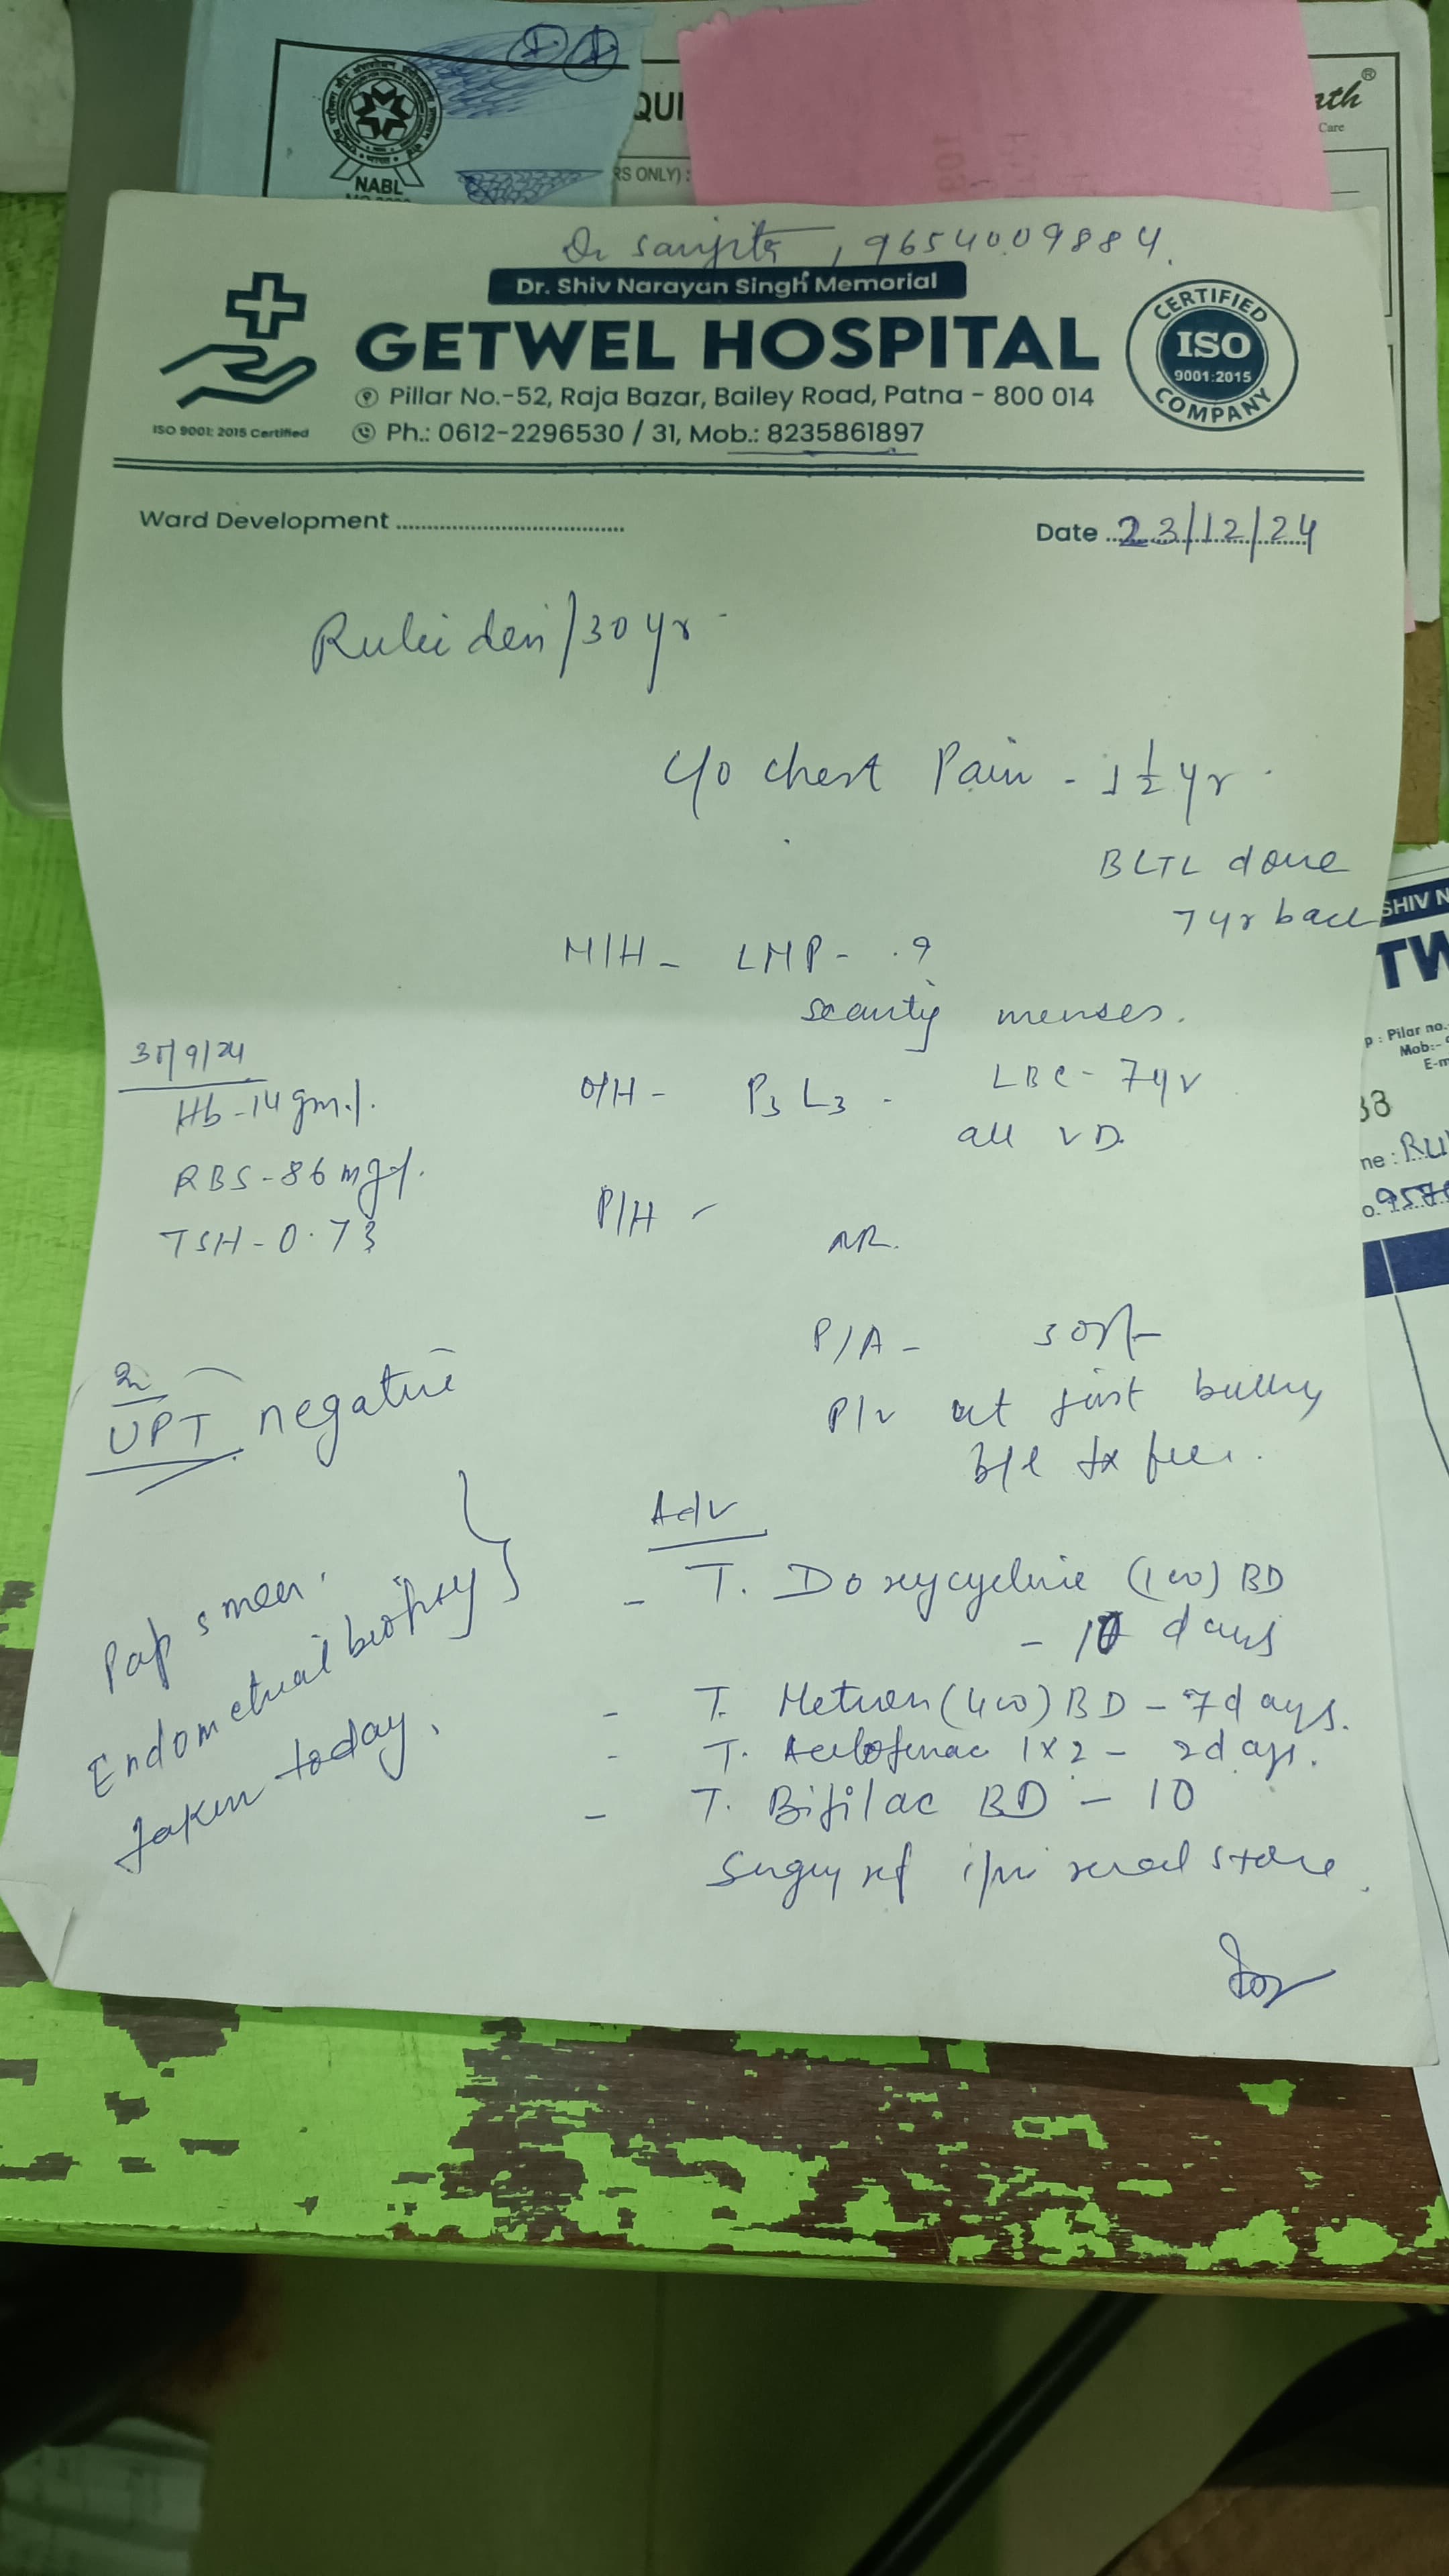 NABL
QUI
RS ONLY) :
ath®
Care
Dr , 9654009884.
Dr. Shiv Narayan Singh Memorial
GETWEL HOSPITAL
Pillar No.-52, Raja Bazar, Bailey Road, Patna - 800 014
Ph.: 0612-2296530 / 31, Mob.: 8235861897
ISO 9001: 2015 Certified
CERTIFIED
ISO
9001:2015
COMPANY
Ward Development
Date 23/12/24
/30 yr
c/o chest Pain - 1 1/2 yr
BLTL done
7 yr back
M/H - LMP - ?
scanty menses.
O/H - P3 L3 - LBC - 7yr
all VD.
P/H -
NR.
/9/24
Hb - 14 gm%.
RBS - 86 mg%.
TSH - 0.73
P/A - soft
P/V ut just bulky
b/l fx free.
UPT negative
Pap smear
Endometrial biopsy }
taken today.
Adv
- T. Doxycycline (100) BD
- days
- T. Metron (400) BD - 7 days.
- T. Aceclofenac 1x2 - 2 days.
- T. Bifilac BD - 10
Surgery ref i/v/o renal stone.
SHIV N
TW
p : Pilar no.
Mob:-
E-m
38
ne : Ru
o. 957